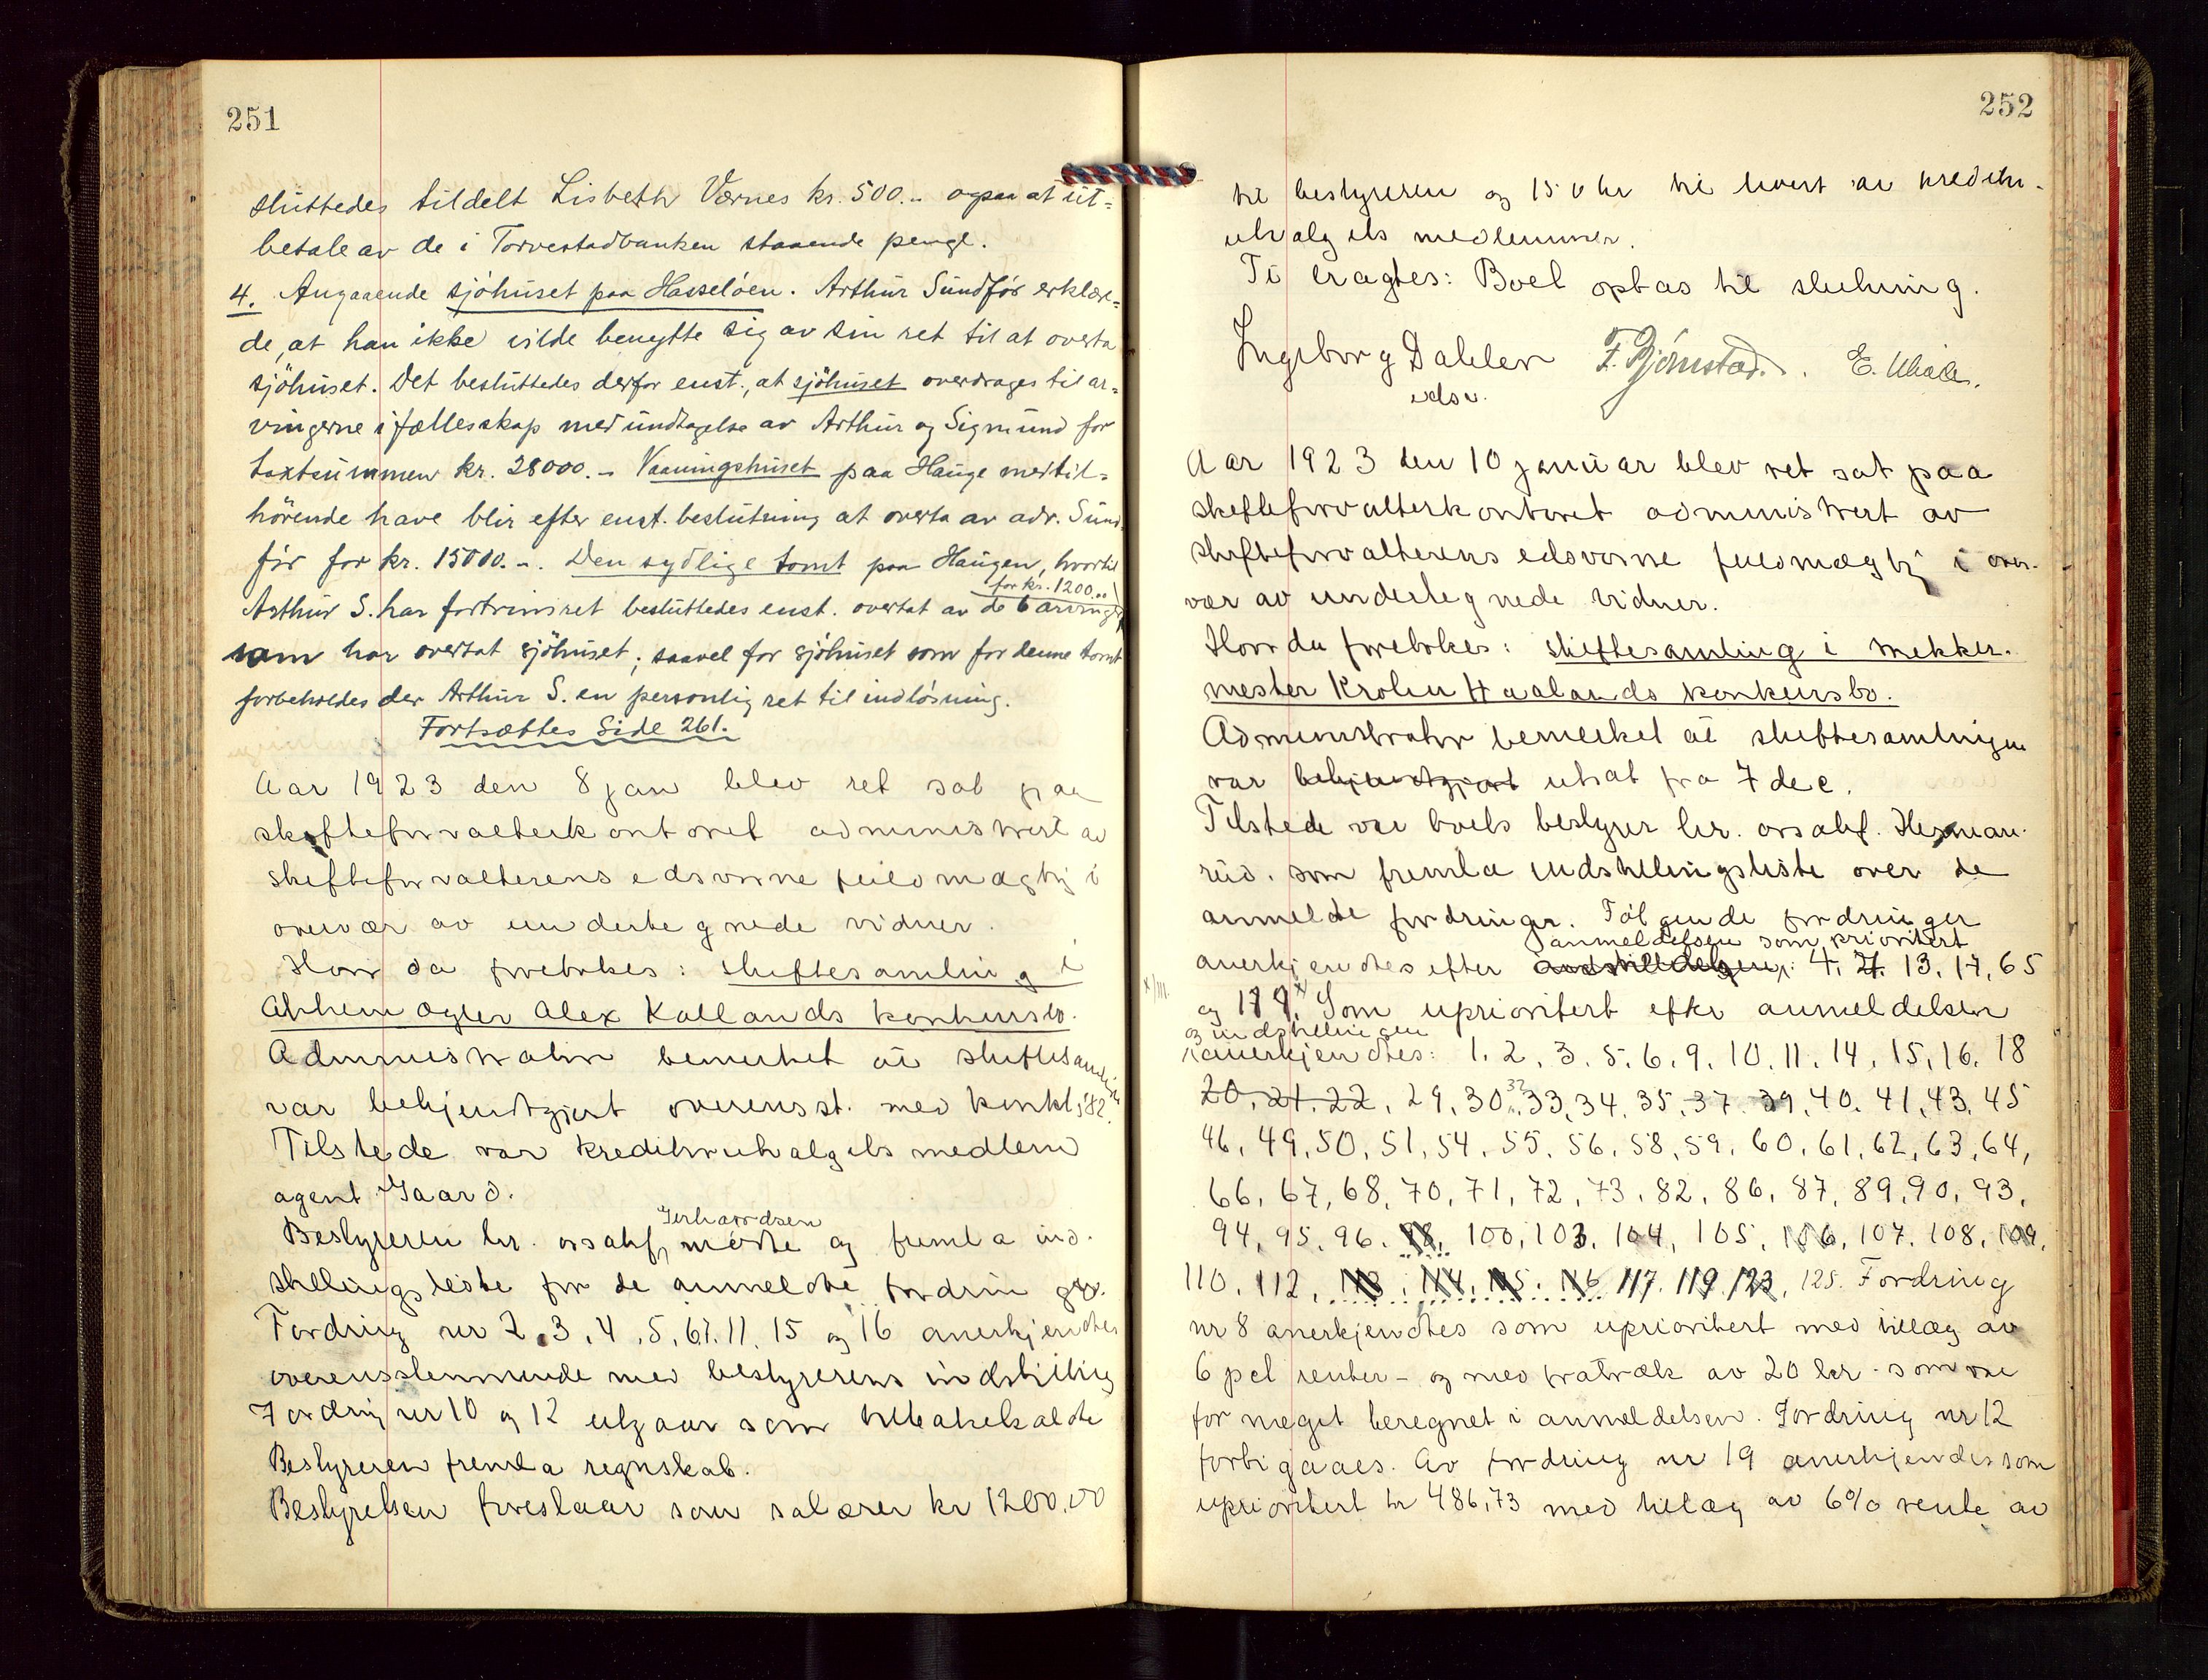 251
sluttedes tildelt Lisbeth Værnes kr. 500.- ogsaa at ut-
betale av de i Torvestadbanken staaende penge.
4. Angaaende sjöhuset paa Hasselöen. Arthur Sundför erklær-
de, at han ikke vilde benytte sig av sin ret til at overta
sjöhuset. Det besluttedes derfor enst., at sjöhuset overdrages til ar-
vingerne i fællesskap med undtagelse av Arthur og Sigmund for
taxtsummen kr. 28000.- Vaaningshuset paa Hauge med til-
hörende have blir efter enst. beslutning at overta av adv. Sund-
för for kr. 15000.-. Den sydlige tomt paa Haugen, hvortil
for kr. 1200.-
Arthur S. har fortrinsret besluttedes enst. overtat av de 6 arvinger
som har overtat sjöhuset; saavel for sjöhuset som for denne tomt
forbeholdes der Arthur S. en personlig ret til indlösning.
Fortsættes Side 261.
Aar 1923 den 8 jan blev ret sat paa
skifteforvalterkontoret administrert av
skifteforvalterens edsvorne fuldmægtig i
overvær av undertegnede vidner.
Hvor da foretokes: skiftesamling i
Alex Kallands konkursbo.
Administrator bemerket at skiftesamlingen
var bekjendtgjort overensst. med konkl § 82.
Tilstede var kreditorutvalgets medlem
agent Gaard.
Gerhardsen
Bestyreren hr. orsakf, mödte og fremla ind-
stillingsliste for de anmeldte fordringer.
Fordring nr 2, 3, 4, 5, 67. 11. 15 og 16 anerkjendtes
overensstemmende med bestyrerens indstilling
Fordring nr 10 og 12 utgaar som tilbakekaldte
Bestyreren fremla regnskab.
Bestyrelsen foreslaar som salærer kr 1200,00
252
til bestyreren og 150 kr til hvert av kreditor-
utvalgets medlemmer.
Ti eragtes: Boet optas til slutning.
Ingeborg Dahler F. Bjørnstad. E.
edsv.
Aar 1923 den 10 januar blev ret sat paa
skifteforvalterkontoret administrert av
skifteforvalterens edsvorne fuldmægtig i over-
vær av undertegnede vidner.
Hvor da foretokes: skiftesamling i mekker-
mester Krohn Haalands konkursbo.
Administrator bemerket at skiftesamlingen
var bekjendtgjort utsat fra 7 dec.
Tilstede var boets bestyrer hr. orsakf. Herman-
rud. som fremla indstillingsliste over de
anmeldte fordringer. Følgende fordringer
anmeldelsen som prioritert
anerkjendtes efter indstillingen: 4. 7. 13. 17, 65
og 119.x Som uprioritert efter anmeldelsen
og indstillingen
anerkjendtes: 1. 2, 3. 5. 6. 9. 10. 11. 14, 15, 16. 18
20. 21. 22, 29, 30. 32 33, 34, 35, 37. 39, 40. 41, 43. 45
46, 49, 50, 51, 54, 55, 56, 58, 59, 60, 61, 62, 63, 64,
66, 67, 68, 70, 71, 72, 73, 82, 86, 87, 89, 90, 93,
94, 95, 96. 98, 100, 103, 104, 105, 106, 107. 108, 109,
110, 112, 113, 114, 115, 116 117. 119. 123, 125. Fordring
nr 8 anerkjendtes som uprioritert med tillæg av
6 pct renter - og med fratræk av 20 kr - som var
for meget beregnet i anmeldelsen. Fordring nr 12
forbigaaes. Av fordring nr 19 anerkjendes som
uprioritert kr 486,73 med tillæg av 6% rente av